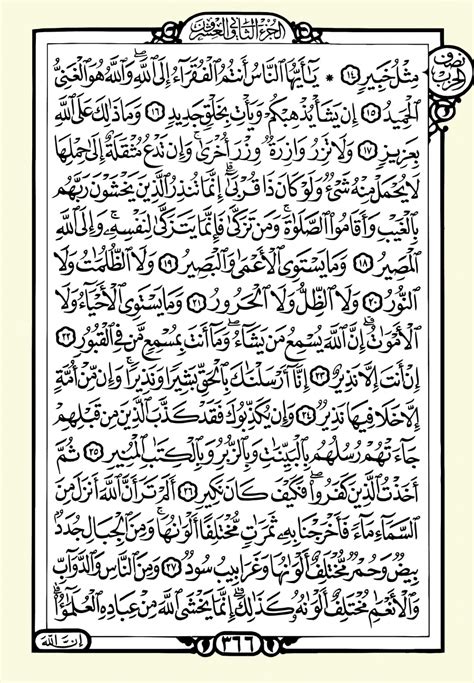 الجزء الثاني والعشرون
نصف الحزب
مِثْلُ خَبِيرٍ ١٤ * يَٰٓأَيُّهَا ٱلنَّاسُ أَنتُمُ ٱلْفُقَرَآءُ إِلَى ٱللَّهِ وَٱللَّهُ هُوَ ٱلْغَنِىُّ
ٱلْحَمِيدُ ١٥ إِن يَشَأْ يُذْهِبْكُمْ وَيَأْتِ بِخَلْقٍ جَدِيدٍ ١٦ وَمَا ذَٰلِكَ عَلَى ٱللَّهِ
بِعَزِيزٍ ١٧ وَلَا تَزِرُ وَازِرَةٌ وِزْرَ أُخْرَىٰ وَإِن تَدْعُ مُثْقَلَةٌ إِلَىٰ حِمْلِهَا
لَا يُحْمَلْ مِنْهُ شَىْءٌ وَلَوْ كَانَ ذَا قُرْبَىٰٓ إِنَّمَا تُنذِرُ ٱلَّذِينَ يَخْشَوْنَ رَبَّهُم
بِٱلْغَيْبِ وَأَقَامُوا۟ ٱلصَّلَوٰةَ وَمَن تَزَكَّىٰ فَإِنَّمَا يَتَزَكَّىٰ لِنَفْسِهِۦ وَإِلَى ٱللَّهِ
ٱلْمَصِيرُ ١٨ وَمَا يَسْتَوِى ٱلْأَعْمَىٰ وَٱلْبَصِيرُ ١٩ وَلَا ٱلظُّلُمَٰتُ وَلَا
ٱلنُّورُ ٢٠ وَلَا ٱلظِّلُّ وَلَا ٱلْحَرُورُ ٢١ وَمَا يَسْتَوِى ٱلْأَحْيَآءُ وَلَا
ٱلْأَمْوَٰتُ إِنَّ ٱللَّهَ يُسْمِعُ مَن يَشَآءُ وَمَآ أَنتَ بِمُسْمِعٍ مَّن فِى ٱلْقُبُورِ ٢٢
إِنْ أَنتَ إِلَّا نَذِيرٌ ٢٣ إِنَّآ أَرْسَلْنَٰكَ بِٱلْحَقِّ بَشِيرًا وَنَذِيرًا وَإِن مِّنْ أُمَّةٍ
إِلَّا خَلَا فِيهَا نَذِيرٌ ٢٤ وَإِن يُكَذِّبُوكَ فَقَدْ كَذَّبَ ٱلَّذِينَ مِن قَبْلِهِمْ
جَآءَتْهُمْ رُسُلُهُم بِٱلْبَيِّنَٰتِ وَبِٱلزُّبُرِ وَبِٱلْكِتَٰبِ ٱلْمُنِيرِ ٢٥ ثُمَّ
أَخَذْتُ ٱلَّذِينَ كَفَرُوا۟ فَكَيْفَ كَانَ نَكِيرِ ٢٦ أَلَمْ تَرَ أَنَّ ٱللَّهَ أَنزَلَ مِنَ
ٱلسَّمَآءِ مَآءً فَأَخْرَجْنَا بِهِۦ ثَمَرَٰتٍ مُّخْتَلِفًا أَلْوَٰنُهَا وَمِنَ ٱلْجِبَالِ جُدَدٌۢ
بِيضٌ وَحُمْرٌ مُّخْتَلِفٌ أَلْوَٰنُهَا وَغَرَابِيبُ سُودٌ ٢٧ وَمِنَ ٱلنَّاسِ وَٱلدَّوَآبِّ
وَٱلْأَنْعَٰمِ مُخْتَلِفٌ أَلْوَٰنُهُۥ كَذَٰلِكَ إِنَّمَا يَخْشَى ٱللَّهَ مِنْ عِبَادِهِ ٱلْعُلَمَٰٓؤُا۟
٣٦٦
إِنَّ ٱللَّهَ